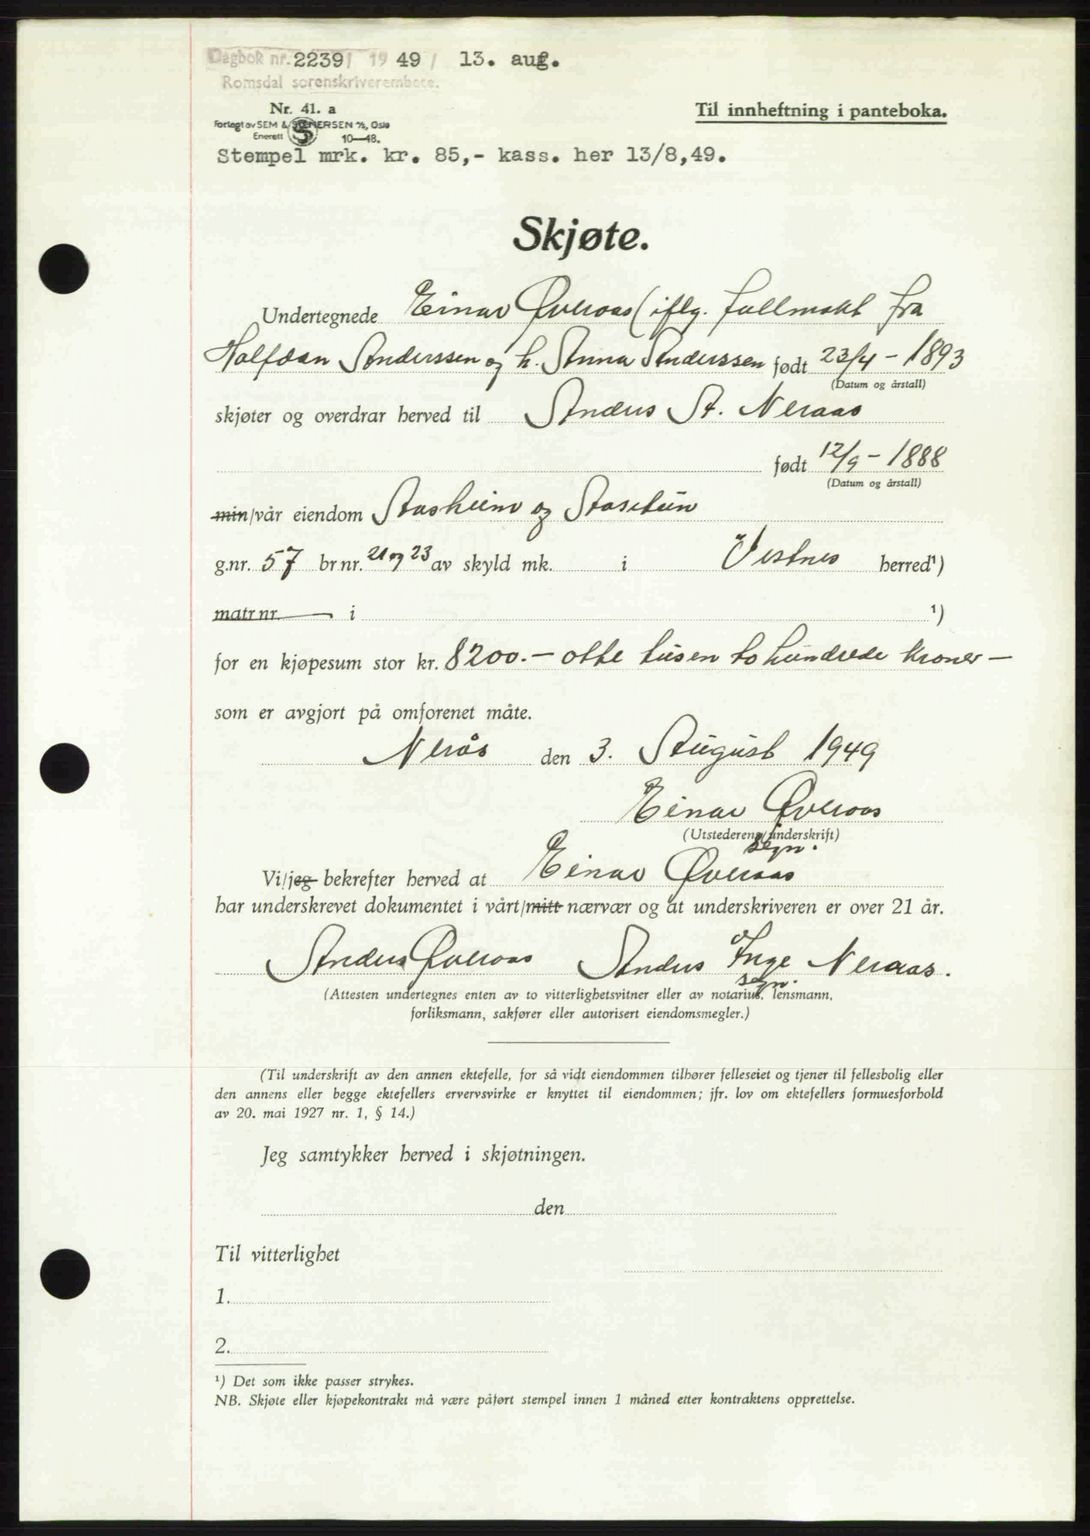 Dagbok nr. 2239/ 1949/ 13. aug.
Romsdal sorenskriverembete.
Nr. 41. a
Til innheftning i panteboka.
Forlagt av SEM & STENERSEN A/S, Oslo
Enerett 10—48.
Stempel mrk. kr. 85,- kass. her 13/8,49.
Skjøte.
Undertegnede Einar Øveraas (iflg. fullmakt fra
Halfdan Anderssen og h. Anna Anderssen født 23/4 - 1893
(Datum og årstall)
skjøter og overdrar herved til Anders A. Neraas
født 12/9 - 1888
(Datum og årstall)
min/vår eiendom Aasheim og Aasetun
g.nr. 57 br nr. 21 og 23 av skyld mk. i Vestnes herred¹)
matr nr. i ¹)
for en kjøpesum stor kr. 8200.- otte tusen to hundrede kroner -
som er avgjort på omforenet måte.
Nerås den 3. August 1949
Einar Øveraas
(Utstederens underskrift)
sign.
Vi/jeg bekrefter herved at Einar Øveraas
har underskrevet dokumentet i vårt/mitt nærvær og at underskriveren er over 21 år.
Anders Øveraas Anders Inge Neraas.
sign.
(Attesten undertegnes enten av to vitterlighetsvitner eller av notarius, lensmann,
forliksmann, sakfører eller autorisert eiendomsmegler.)
(Til underskrift av den annen ektefelle, for så vidt eiendommen tilhører felleseiet og tjener til fellesbolig eller
den annens eller begge ektefellers ervervsvirke er knyttet til eiendommen; jfr. lov om ektefellers formuesforhold
av 20. mai 1927 nr. 1, § 14.)
Jeg samtykker herved i skjøtningen.
den
Til vitterlighet
1.
2.
¹) Det som ikke passer strykes.
NB. Skjøte eller kjøpekontrakt må være påført stempel innen 1 måned etter kontraktens opprettelse.